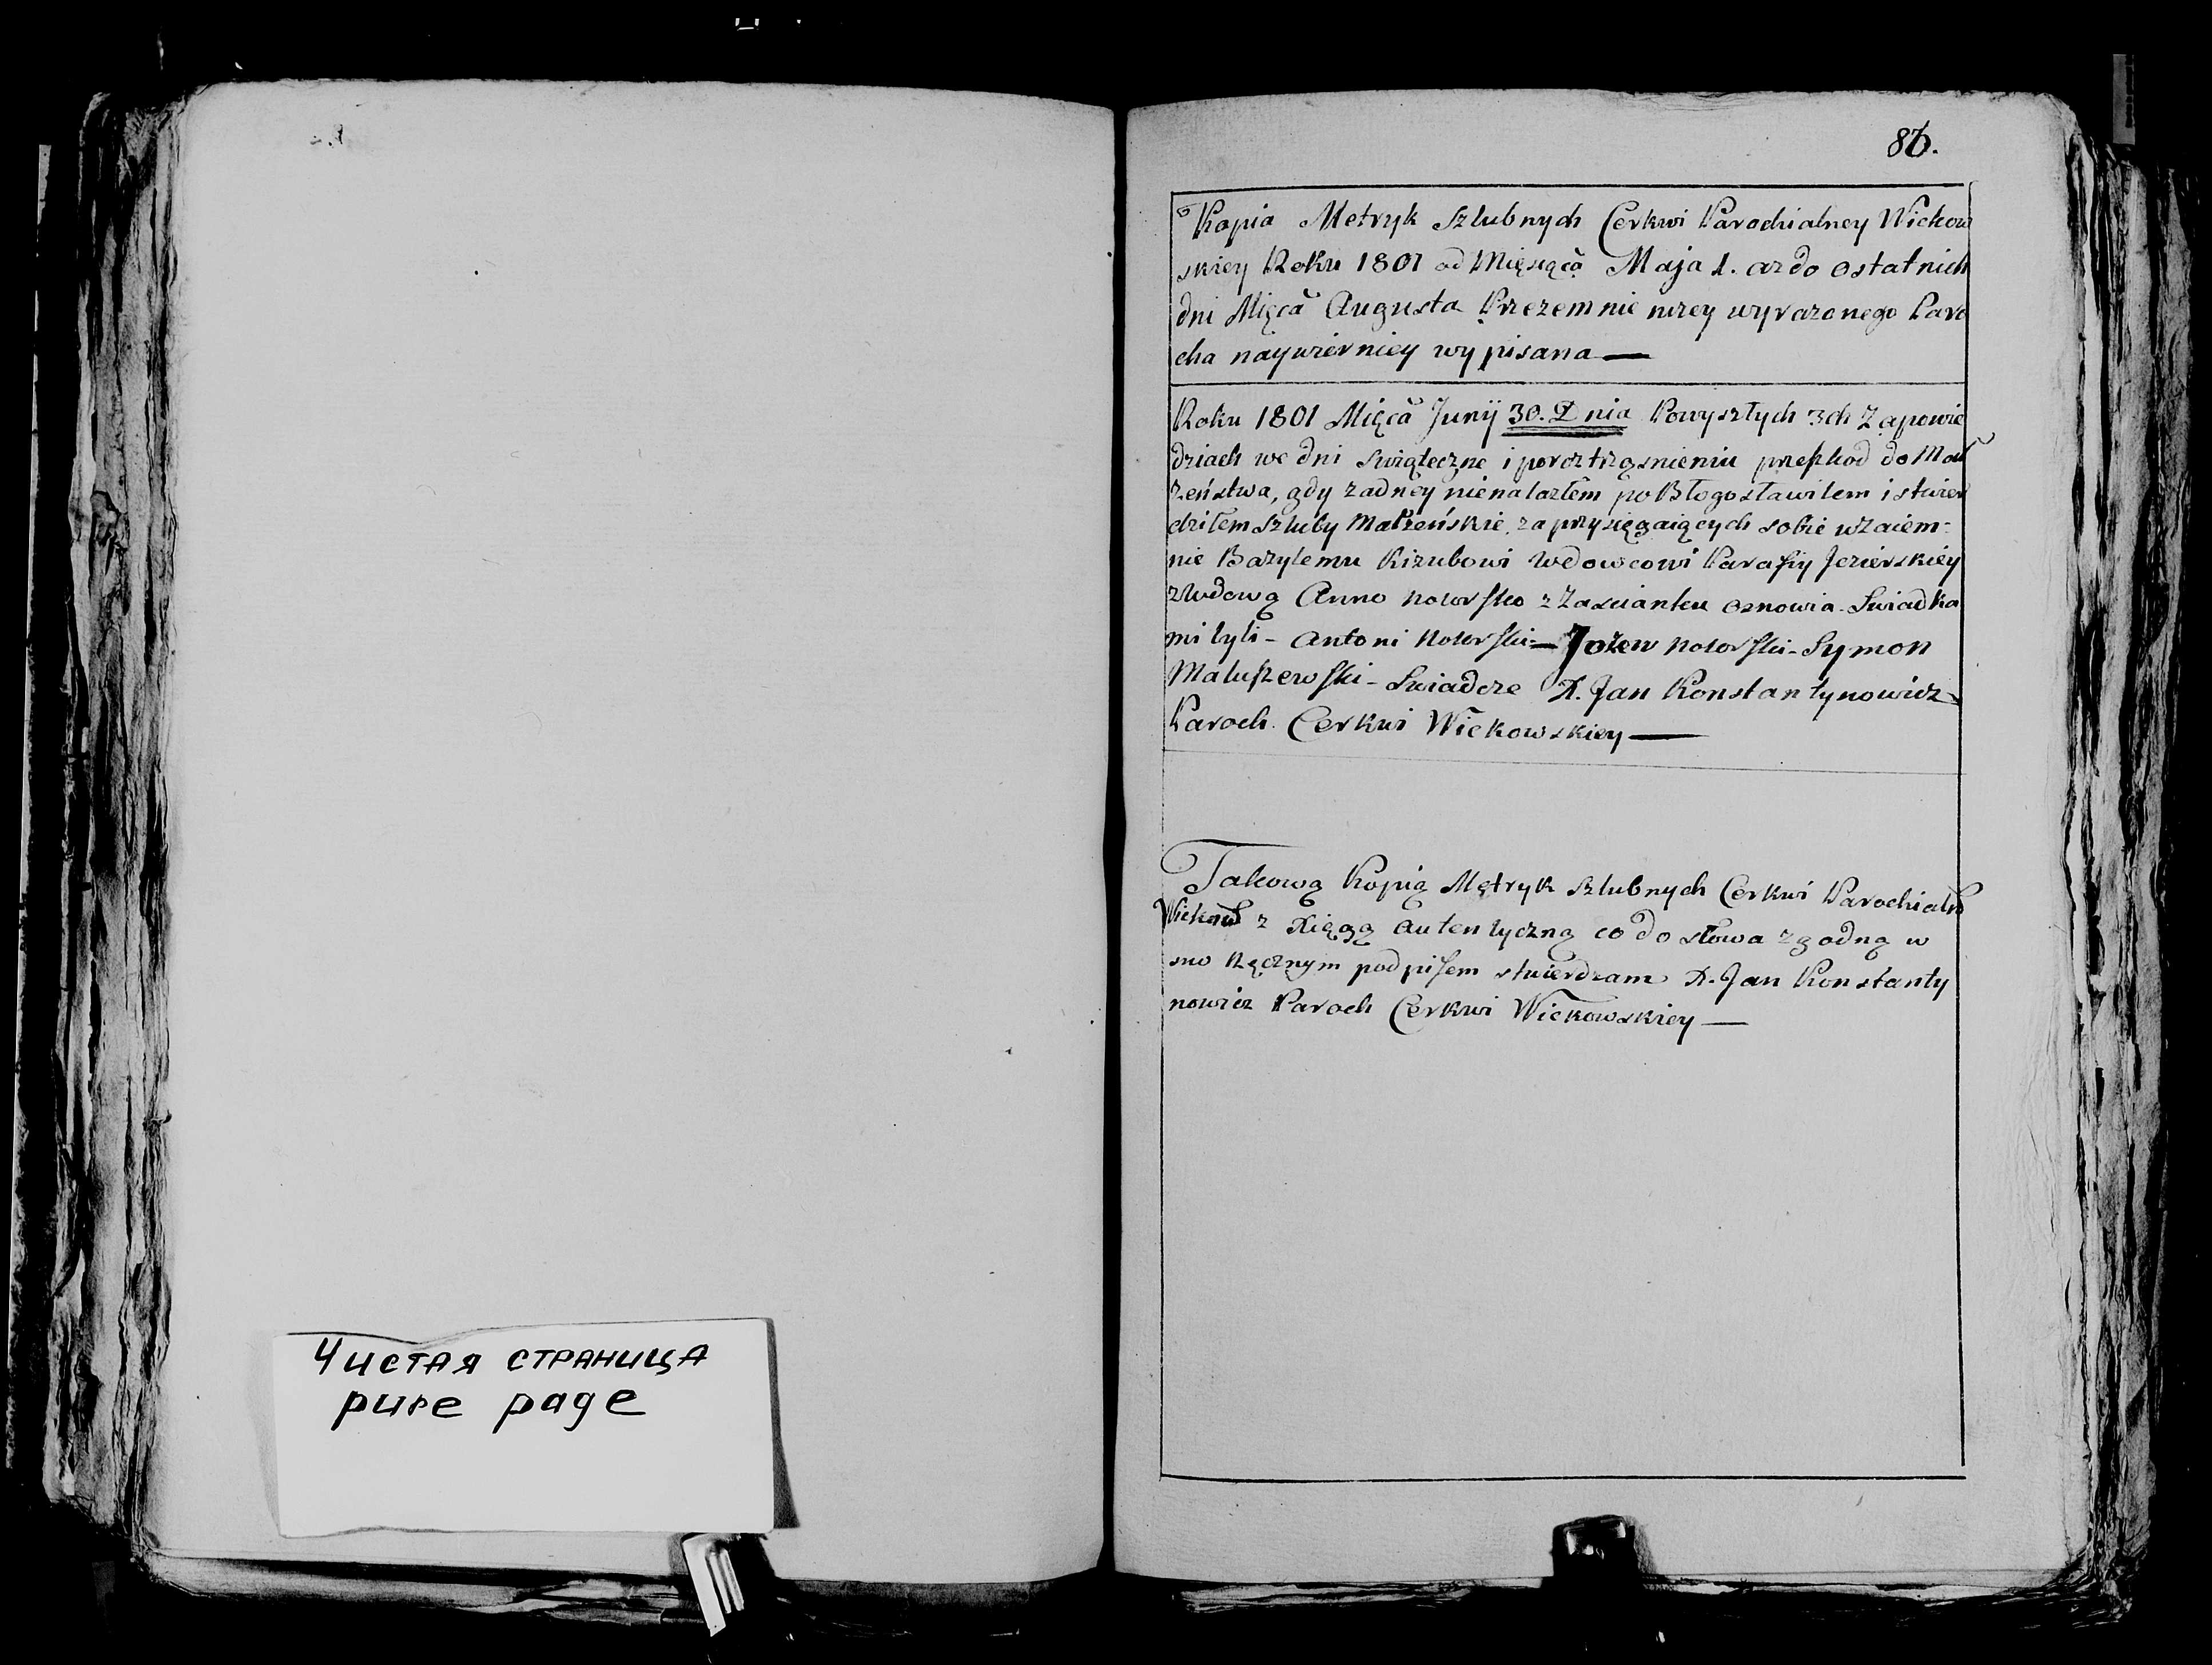 86.
Kopia Metryk Szlubnych Cerkwi Parochialney Wickow
skiey Roku 1801 od Mięsiąca Maja 1. az do ostatnich
dni Mięca Augusta Przezemnie nizey wyrazonego Paro
cha naywierniey wypisana —
Roku 1801 Mięca Junij 30. Dnia Powyszłych 3ch Zapowie
dziach we dni swiąteczne i poroztrząsnieniu przeszkod do Mał
zeństwa, gdy zadney nienalazłem po Błogosławilem i stwier
dziłem szluby Małzeńskie zaprzysięgaiących sobie wzaiem-
nie Bazylemu Kizubowi Wdowcowi Parafiy Jezierskiey
zwdową Anno z Zascianku Osnowia. Swiadka
mi byli - Antoni — Jozew - Symon
Maluszewski - Swiadcze X. Jan Konstantynowicz
Paroch Cerkwi Wickowskiey —
Takową Kopią Mętryk szlubnych Cerkwi Parochialn
Wickow z Xięgą autentyczną co do słowa zgodną w
sno Ręcznym podpisem stwierdzam X. Jan Konstanty
nowicz Paroch Cerkwi Wickowskiey —
Чистая страница
pure page